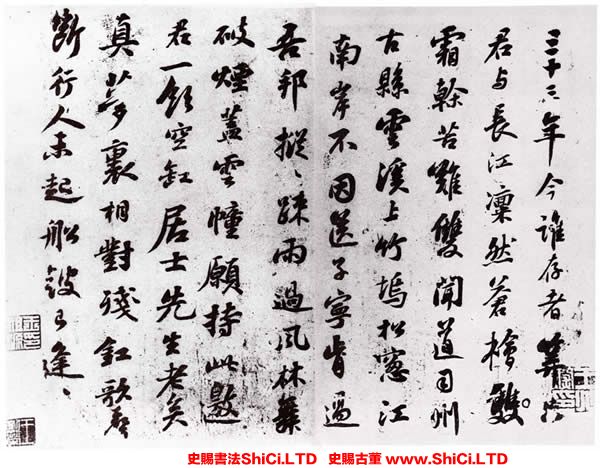 三十三年今誰存者筭只
君与長江凜然蒼檜雙
霜幹苦難雙聞道司州
古縣雲溪上竹塢松窓江
南岸不因送子寧肯過
吾邦摐〻踈雨過風林舞
破煙蓋雲幢願持此邀
君一飲空缸居士先生老矣
真夢裏相對殘釭歌聲
斷行人未起船鼓已逢〻
史賜書法ShiCi.LTD 史賜古董 www.ShiCi.LTD